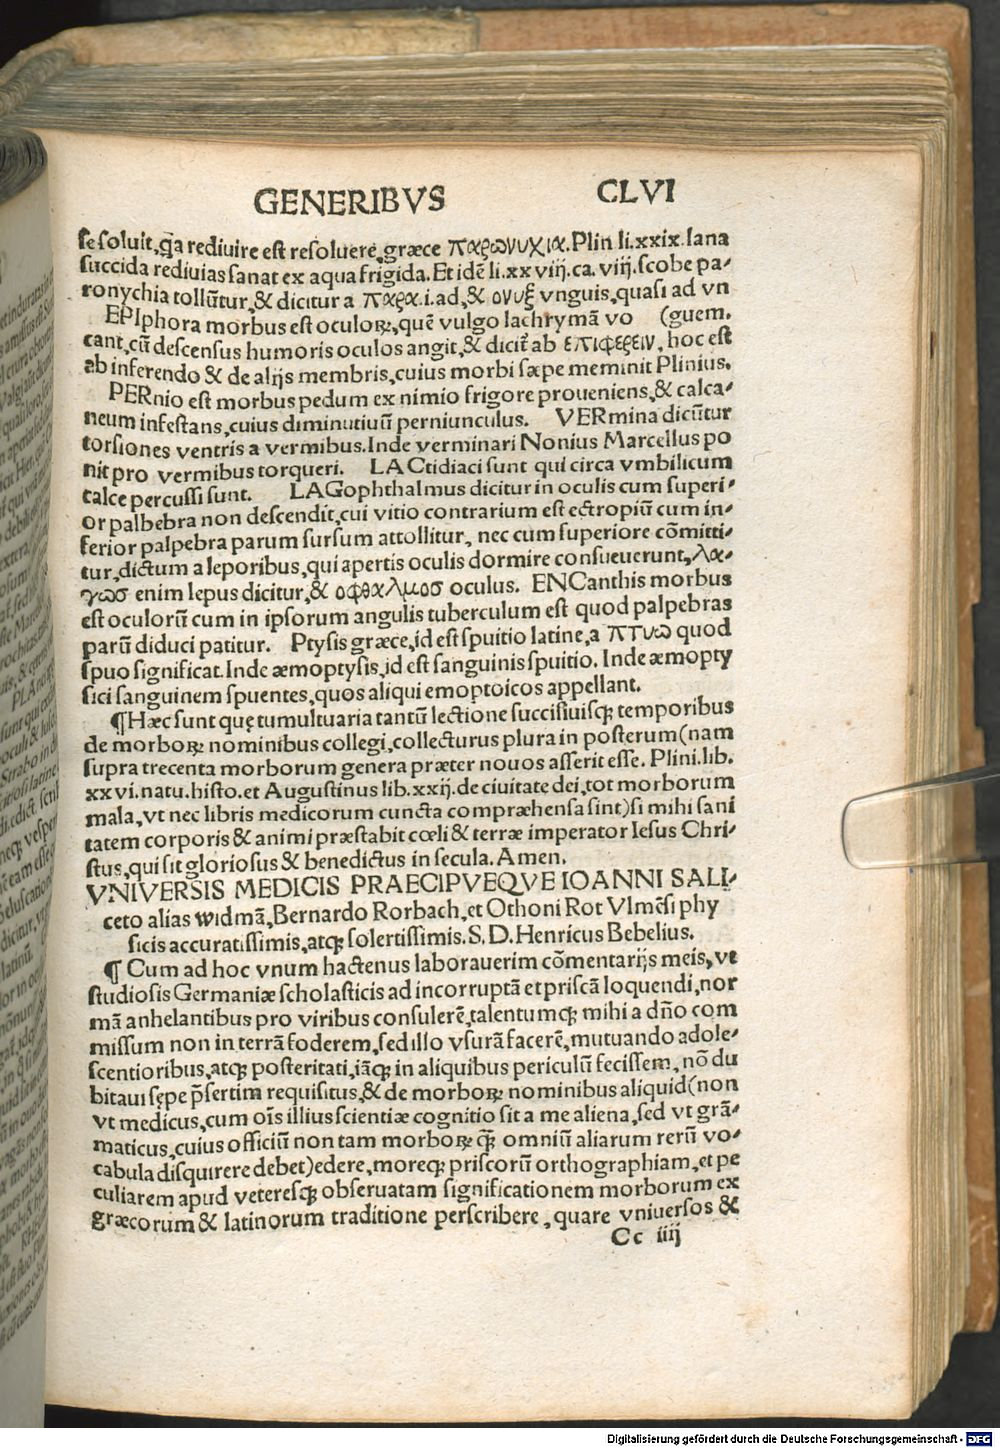 GENERIBVS CLVI
se soluit, q̃a rediuire est resoluere, græce παρωνυχια. Plin li. xxix. lana
succida rediuias sanat ex aqua frigida. Et idē li. xxviij. ca. viij. scobe pa-
ronychia tollũtur, & dicitur a παρα .i. ad, & ονυξ vnguis, quasi ad vn
EPIphora morbus est oculoꝝ, quē vulgo lachrymā vo (guem.
cant, cũ descensus humoris oculos angit, & dicit̃ ab επιφερειν, hoc est
ab inferendo & de alijs membris, cuius morbi sæpe meminit Plinius.
PERnio est morbus pedum ex nimio frigore proueniens, & calca-
neum infestans, cuius diminutiuũ perniunculus. VERmina dicũtur
torsiones ventris a vermibus. Inde verminari Nonius Marcellus po
nit pro vermibus torqueri. LACtidiaci sunt qui circa vmbilicum
calce percussi sunt. LAGophthalmus dicitur in oculis cum superi-
or palbebra non descendit, cui vitio contrarium est ectropiũ cum in-
ferior palpebra parum sursum attollitur, nec cum superiore cōmitti-
tur, dictum a leporibus, qui apertis oculis dormire consueuerunt, λα-
γωσ enim lepus dicitur, & οφθαλμοσ oculus. ENCanthis morbus
est oculorũ cum in ipsorum angulis tuberculum est quod palpebras
parũ diduci patitur. Ptysis græce, id est spuitio latine, a πτυω quod
spuo significat. Inde æmoptysis, id est sanguinis spuitio. Inde æmopty
sici sanguinem spuentes, quos aliqui emoptoicos appellant.
¶Hæc sunt quę tumultuaria tantũ lectione succisiuisq; temporibus
de morboꝝ nominibus collegi, collecturus plura in posterum (nam
supra trecenta morborum genera præter nouos asserit esse. Plini. lib.
xxvi. natu. histo. et Augustinus lib. xxij. de ciuitate dei, tot morborum
mala, vt nec libris medicorum cuncta compræhensa sint) si mihi sani
tatem corporis & animi præstabit cœli & terræ imperator Iesus Chri-
stus, qui sit gloriosus & benedictus in secula. Amen.
VNIVERSIS MEDICIS PRAECIPVEQVE IOANNI SALI-
ceto alias widmā, Bernardo Rorbach, et Othoni Rot Vlmēsi phy
sicis accuratissimis, atq; solertissimis. S. D. Henricus Bebelius.
¶ Cum ad hoc vnum hactenus laborauerim cōmentarijs meis, vt
studiosis Germaniæ scholasticis ad incorruptā et priscā loquendi, nor
mā anhelantibus pro viribus consulerē, talentumq; mihi a dño com
missum non in terrā foderem, sed illo vsurā facerē, mutuando adole-
scentioribus, atq; posteritati, iāq; in aliquibus periculũ fecissem, nō du
bitaui sępe p̃sertim requisitus, & de morboꝝ nominibus aliquid (non
vt medicus, cum oīs illius scientiæ cognitio sit a me aliena, sed vt grā-
maticus, cuius officiũ non tam morboꝝ q̃ omniũ aliarum rerũ vo-
cabula disquirere debet) edere, moreq; priscorũ orthographiam, et pe
culiarem apud veteresq; obseruatam significationem morborum ex
græcorum & latinorum traditione perscribere, quare vniuersos &
Cc iiij
Digitalisierung gefördert durch die Deutsche Forschungsgemeinschaft - DFG